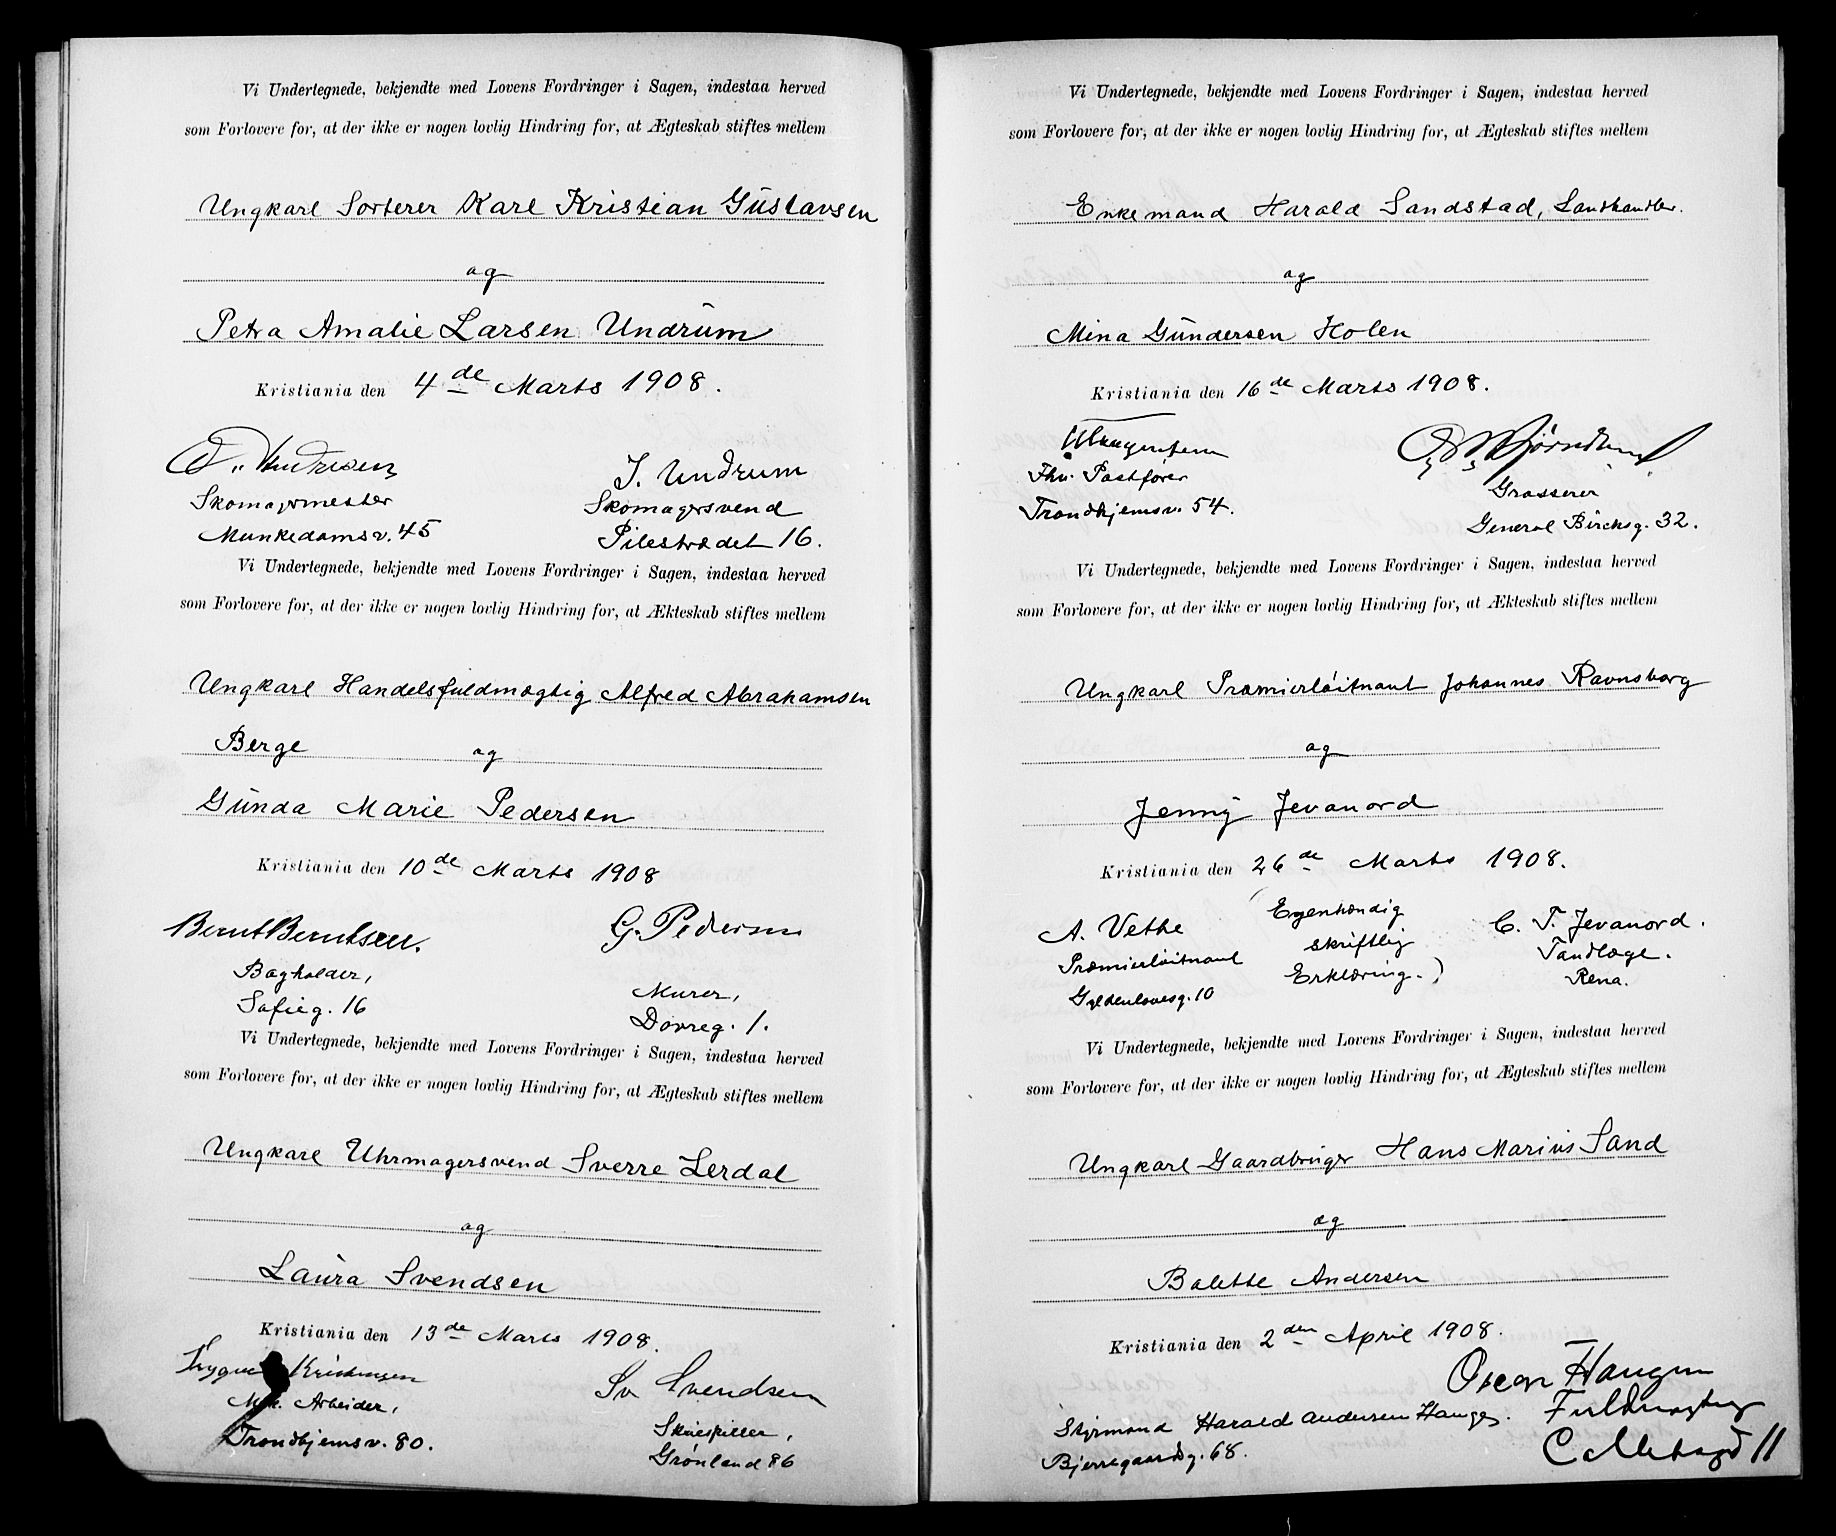 Vi Undertegnede, bekjendte med Lovens Fordringer i Sagen, indestaa herved
som Forlovere for, at der ikke er nogen lovlig Hindring for, at Ægteskab stiftes mellem
Ungkarl Sorterer Karl Kristian Gustavsen
og
Petra Amalie Larsen Undrum
Kristiania den 4de Marts 1908.
J. Undrum
Skomagermester
Skomagersvend
Munkedamsv. 45
Pilestrædet 16.
Vi Undertegnede, bekjendte med Lovens Fordringer i Sagen, indestaa herved
som Forlovere for, at der ikke er nogen lovlig Hindring for, at Ækteskab stiftes mellem
Ungkarl Handelsfuldmægtig Alfred Abrahamsen
Berge og
Gunda Marie Pedersen
Kristiania den 10de Marts 1908
Bernt Berntsen. G. Pedersen
Bogholder,
Murer,
Sofieg. 16
Dovreg. 1.
Vi Undertegnede, bekjendte med Lovens Fordringer i Sagen, indestaa herved
som Forlovere for, at der ikke er nogen lovlig Hindring for, at Ægteskab stiftes mellem
Ungkarl Uhrmagersvend Sverre Lerdal
og
Laura Svendsen
Kristiania den 13de Marts 1908.
Trygve Kristensen
Sv Svendsen
Mek. Arbeider,
Skuespiller,
Trondhjemsv. 80.
Grønland 86
Vi Undertegnede, bekjendte med Lovens Fordringer i Sagen, indestaa herved
som Forlovere for, at der ikke er nogen lovlig Hindring for, at Ægteskab stiftes mellem
Enkemand Harald Sandstad, Landhandler.
og
Mina Gundersen Holen
Kristiania den 16de Marts 1908.
Fhv. Postfører
Grosserer
Trondhjemsv. 54.
General Birchsg. 32.
Vi Undertegnede, bekjendte med Lovens Fordringer i Sagen, indestaa herved
som Forlovere for, at der ikke er nogen lovlig Hindring for, at Ækteskab stiftes mellem
Ungkarl Præmierløitnant Johannes Ravnsborg
og
Jenny Jevanord
Kristiania den 26de Marts 1908.
A. Vethe (Egenhændig C. T. Jevanord.
Præmierløitnant skriftlig Tandlæge.
Gyldenløvesg. 10 Erklæring.) Rena.
Vi Undertegnede, bekjendte med Lovens Fordringer i Sagen, indestaa herved
som Forlovere for, at der ikke er nogen lovlig Hindring for, at Ægteskab stiftes mellem
Ungkarl Gaardbruger Hans Marius Sand
og
Balette Andersen
Kristiania den 2den April 1908.
Oscar Haugen
Styrmand Harald Andersen Hauges. Fuldmægtig
Bjerregaardsg. 68.